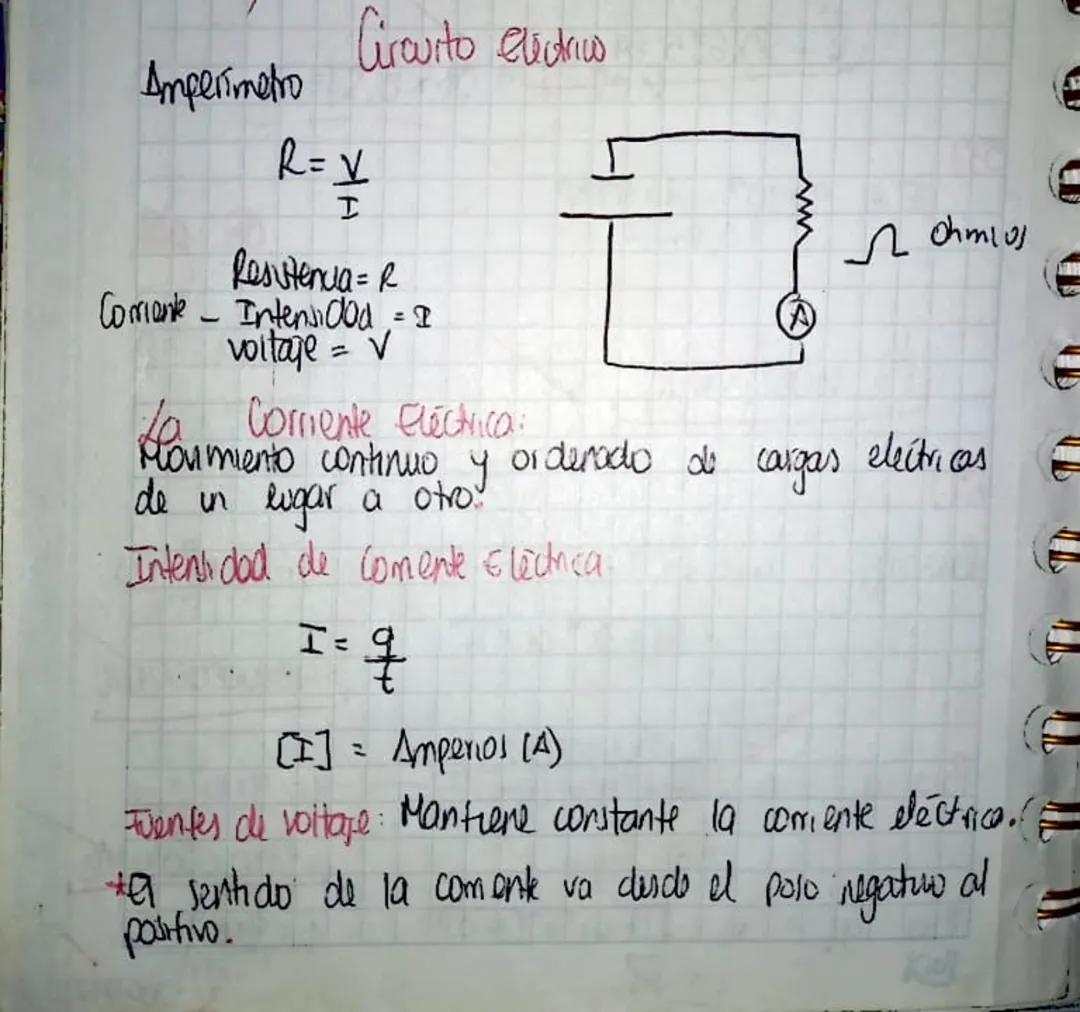 Circuito eléctrico
Amperímetro
R = V
I
A
Ω Ohmios
Resistencia = R
Corriente - Intensidad = I
voltaje = V
La Corriente Eléctrica:
Movimiento continuo y ordenado de cargas eléctricas
de un lugar a otro.
Intensidad de Corriente Eléctrica
I = q
t
[I] = Amperios (A)
Fuentes de voltaje: Mantiene constante la corriente eléctrica.
*El sentido de la corriente va desde el polo negativo al
positivo.